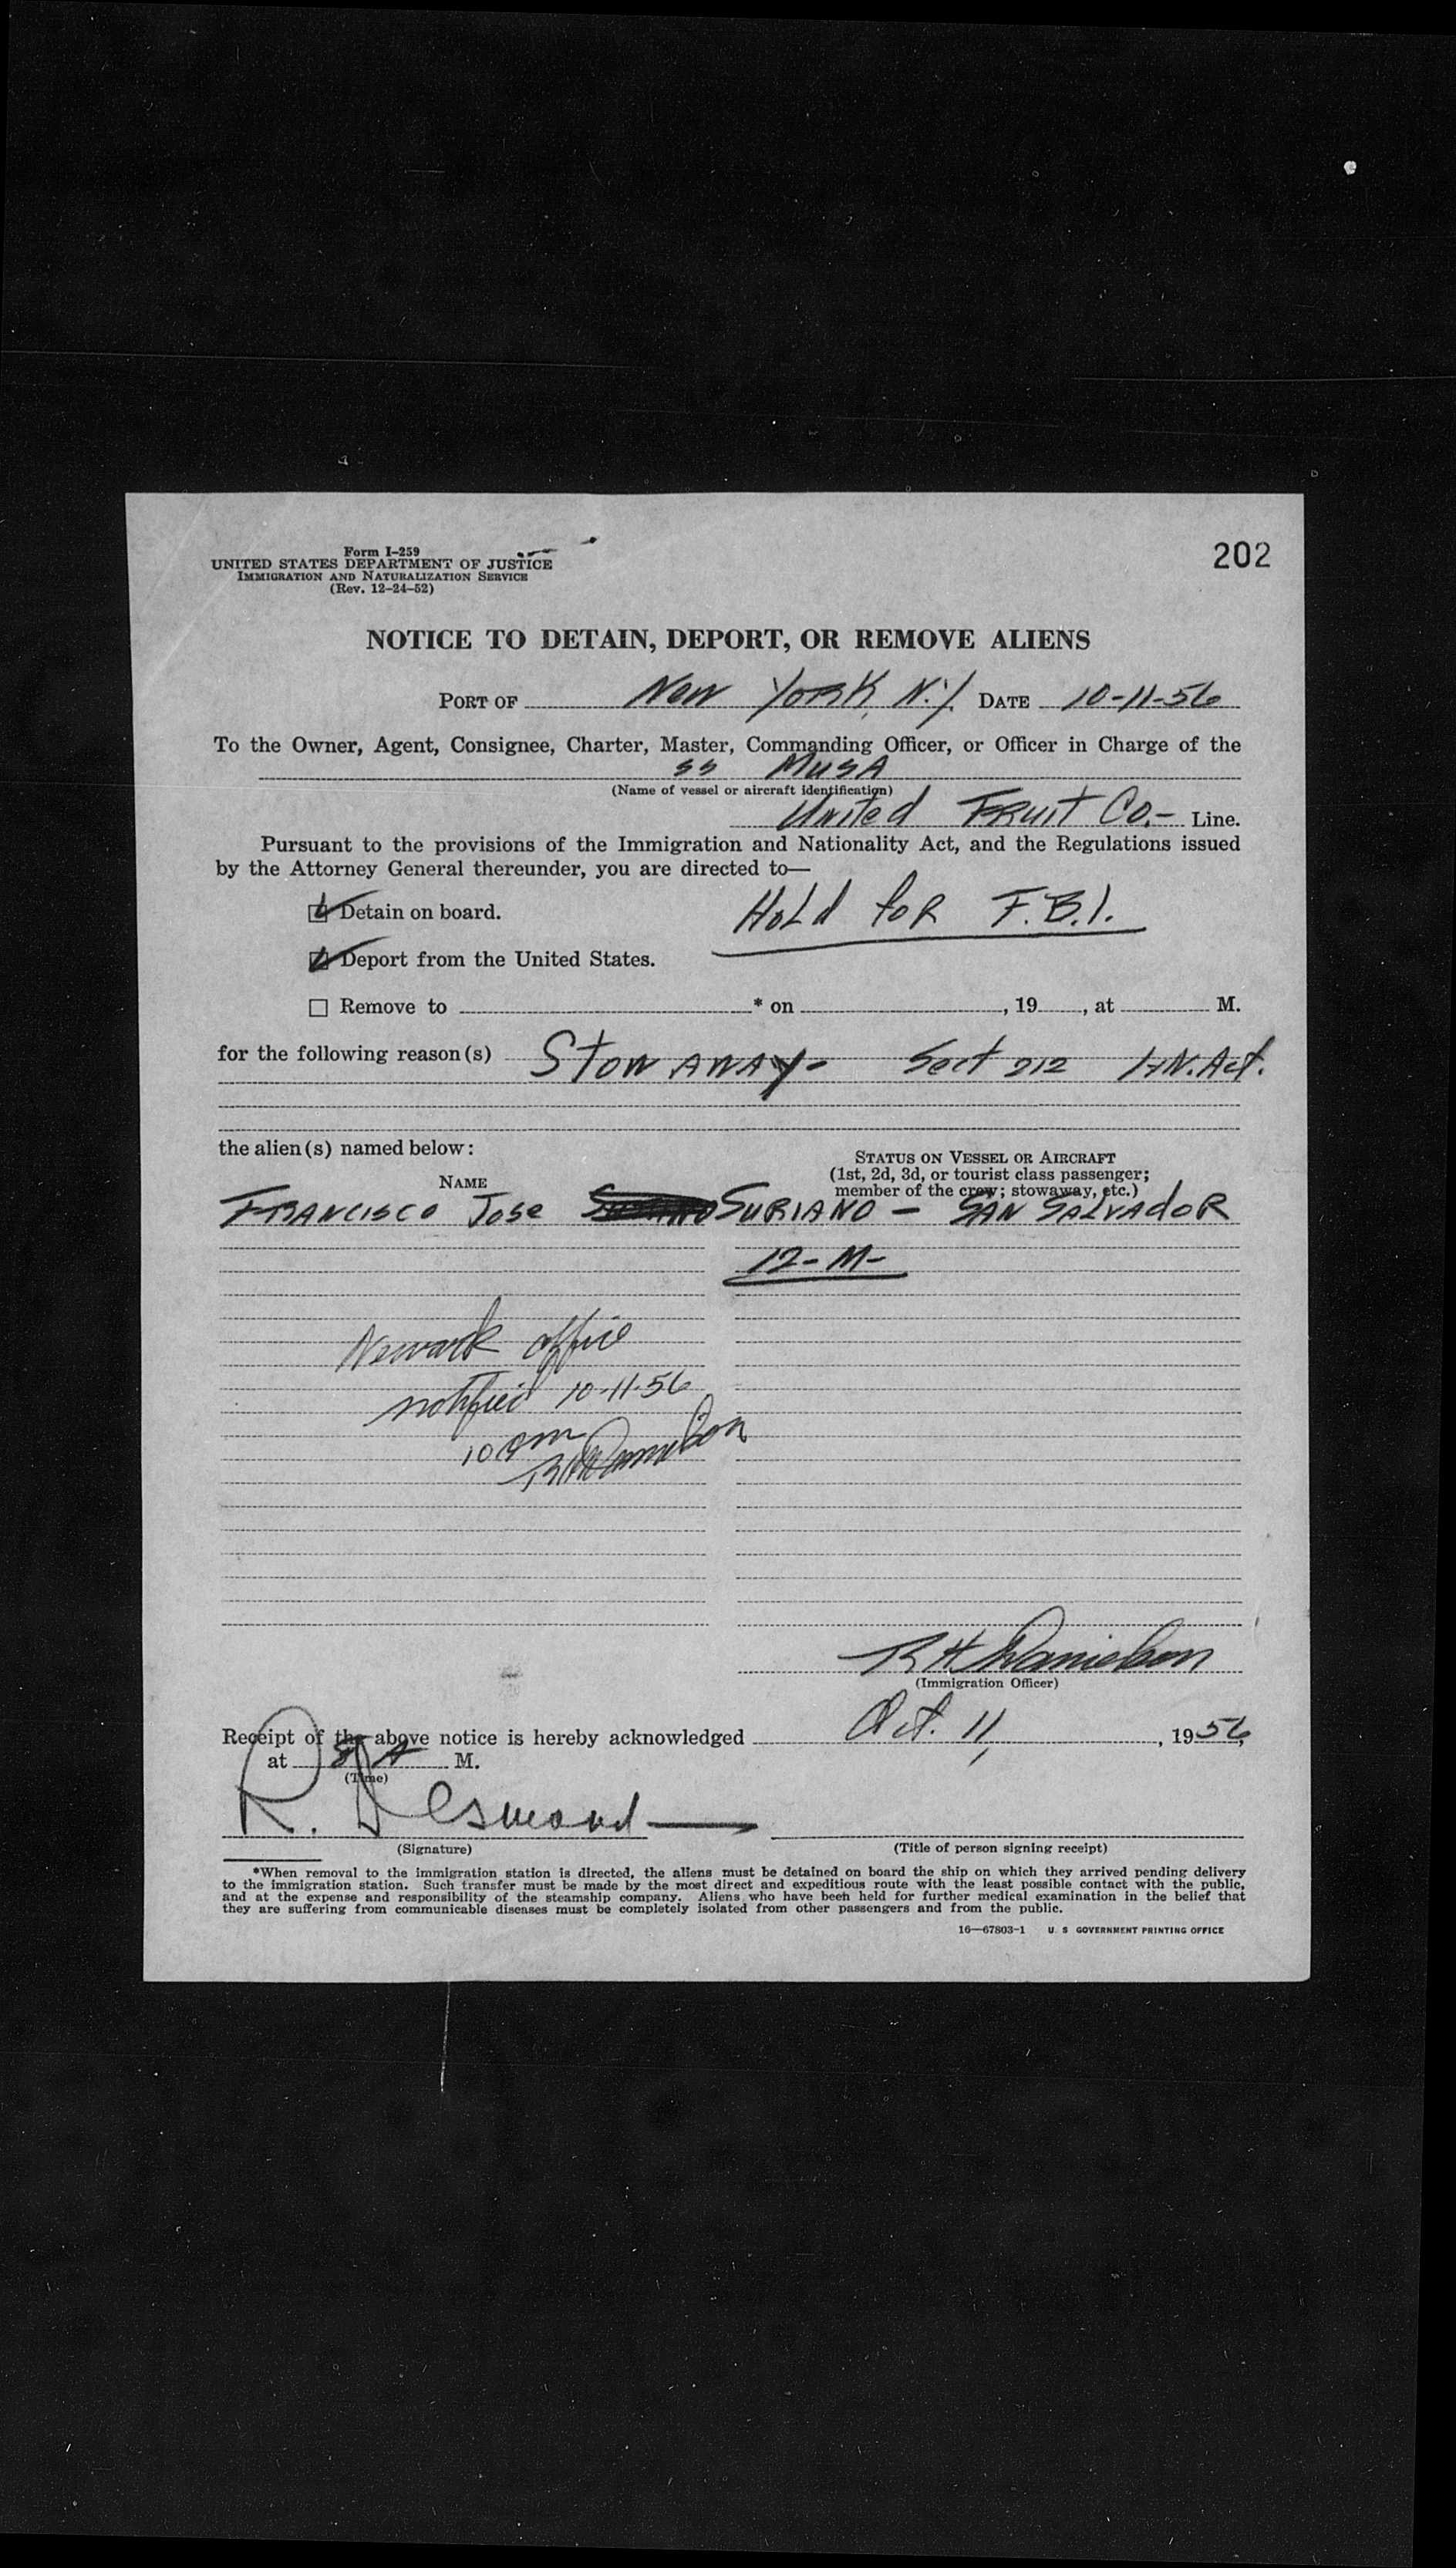 Form I-259
UNITED STATES DEPARTMENT OF JUSTICE
IMMIGRATION AND NATURALIZATION SERVICE
(Rev. 12-24-52)
202
NOTICE TO DETAIN, DEPORT, OR REMOVE ALIENS
PORT OF New York, N.Y. DATE 10-11-56
To the Owner, Agent, Consignee, Charter, Master, Commanding Officer, or Officer in Charge of the
SS MUSA
(Name of vessel or aircraft identification)
United Fruit Co.- Line.
Pursuant to the provisions of the Immigration and Nationality Act, and the Regulations issued
by the Attorney General thereunder, you are directed to—
Detain on board. Hold for F.B.I.
Deport from the United States.
Remove to * on , 19 , at M.
for the following reason(s) Stow away- Sect 212 I+N. Act.
the alien(s) named below:
NAME
STATUS ON VESSEL OR AIRCRAFT
(1st, 2d, 3d, or tourist class passenger;
member of the crew; stowaway, etc.)
FRANCISCO Jose SURIANO - SAN SALVADOR
12-M-
Newark office
notified 10-11-56
10 am
RH Danielson
RH Danielson
(Immigration Officer)
Receipt of the above notice is hereby acknowledged Oct. 11, , 1956
at 8 A M.
(Time)
R. Desmond
(Signature)
(Title of person signing receipt)
*When removal to the immigration station is directed, the aliens must be detained on board the ship on which they arrived pending delivery
to the immigration station. Such transfer must be made by the most direct and expeditious route with the least possible contact with the public,
and at the expense and responsibility of the steamship company. Aliens who have been held for further medical examination in the belief that
they are suffering from communicable diseases must be completely isolated from other passengers and from the public.
16—67803-1 U. S GOVERNMENT PRINTING OFFICE